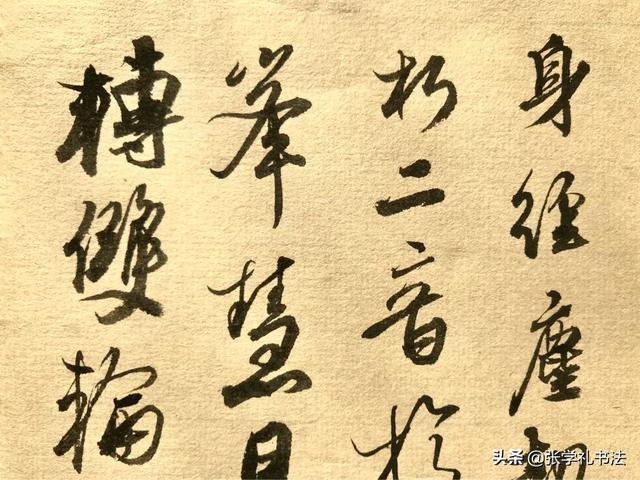 身經塵
朽二音於
峯慧日
轉雙輪
头条 @张学礼书法